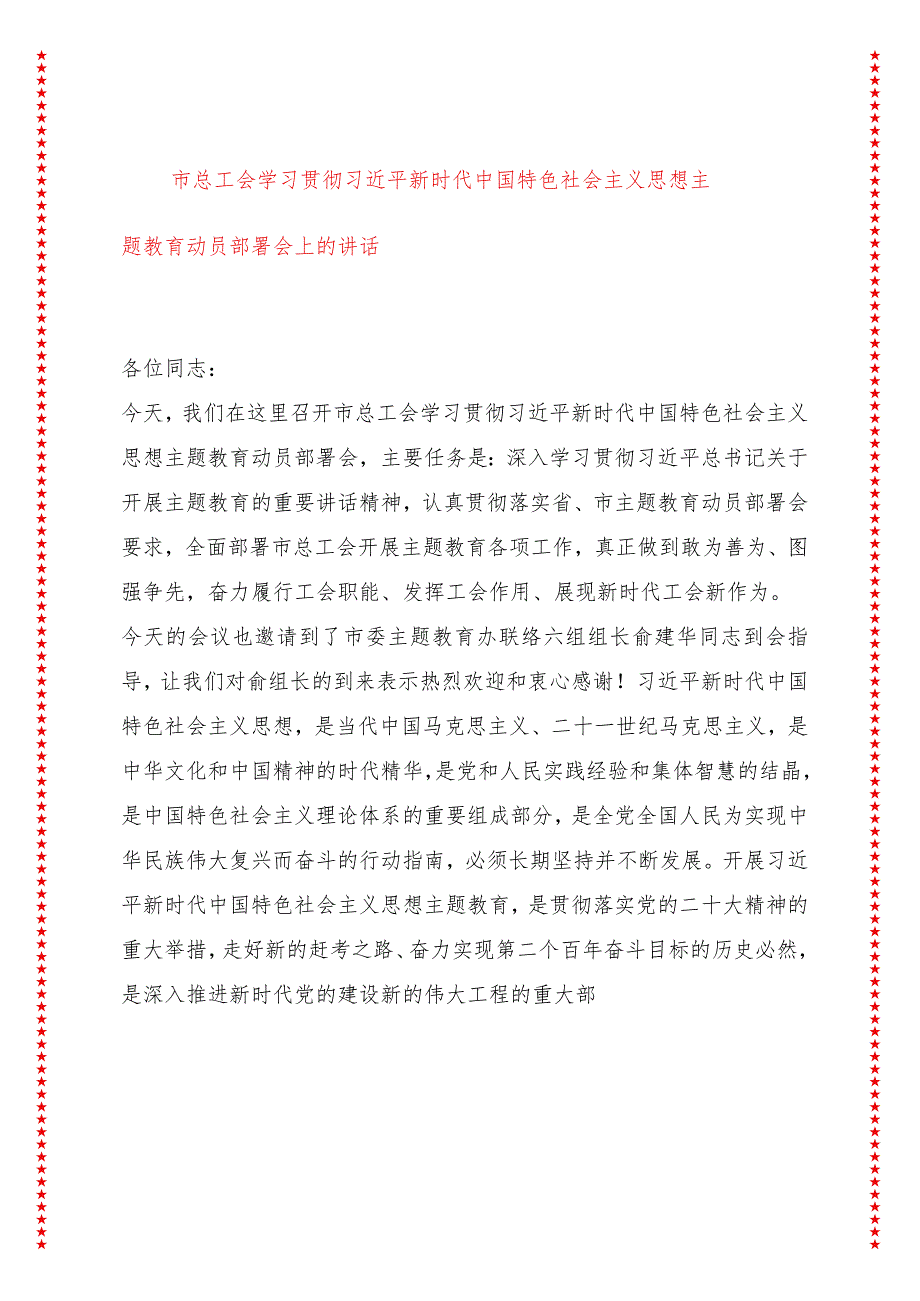 市总工会学习贯彻习近平新时代中国特色社会主义思想主
题教育动员部署会上的讲话
各位同志：
今天，我们在这里召开市总工会学习贯彻习近平新时代中国特色社会主义
思想主题教育动员部署会，主要任务是：深入学习贯彻习近平总书记关于
开展主题教育的重要讲话精神，认真贯彻落实省、市主题教育动员部署会
要求，全面部署市总工会开展主题教育各项工作，真正做到敢为善为、图
强争先，奋力履行工会职能、发挥工会作用、展现新时代工会新作为。
今天的会议也邀请到了市委主题教育办联络六组组长俞建华同志到会指
导，让我们对俞组长的到来表示热烈欢迎和衷心感谢！习近平新时代中国
特色社会主义思想，是当代中国马克思主义、二十一世纪马克思主义，是
中华文化和中国精神的时代精华，是党和人民实践经验和集体智慧的结晶，
是中国特色社会主义理论体系的重要组成部分，是全党全国人民为实现中
华民族伟大复兴而奋斗的行动指南，必须长期坚持并不断发展。开展习近
平新时代中国特色社会主义思想主题教育，是贯彻落实党的二十大精神的
重大举措，走好新的赶考之路、奋力实现第二个百年奋斗目标的历史必然，
是深入推进新时代党的建设新的伟大工程的重大部